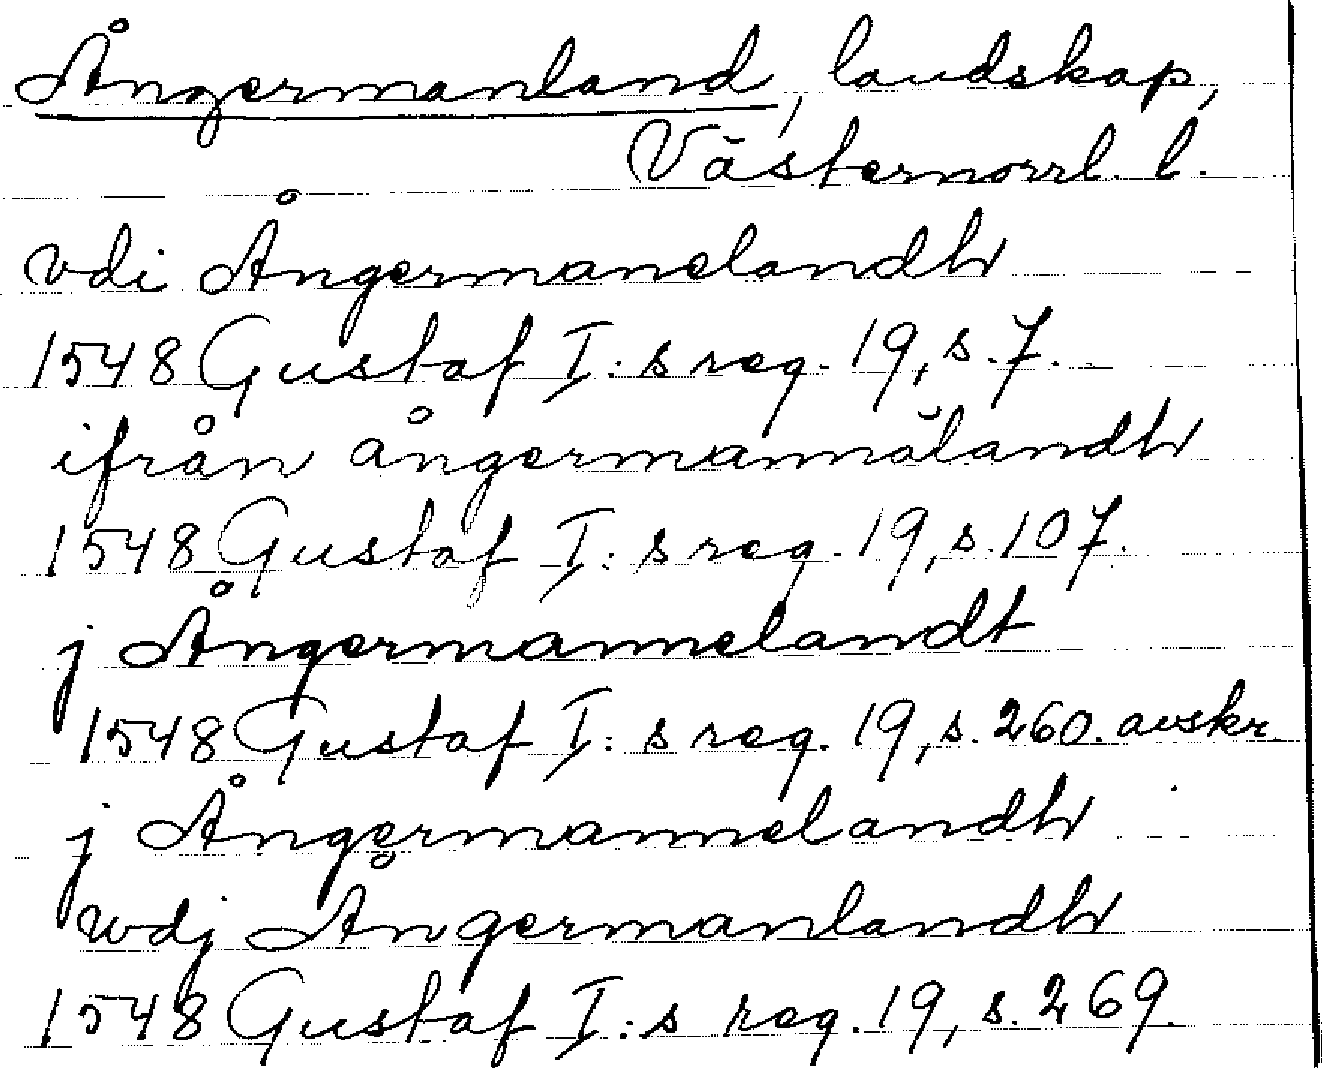 Ångermanland, landskap,
Västernorrl. l.
vdi Ångermanelandh
1548 Gustaf I:s reg. 19, s. 7.
ifrån ångermannälandh
1548 Gustaf I:s reg. 19, s. 107.
j Ångermannelandt
1548 Gustaf I:s reg. 19, s. 260. avskr.
j Ångermannelandh
wdj Ångermanlandh
1548 Gustaf I:s reg. 19, s. 269.